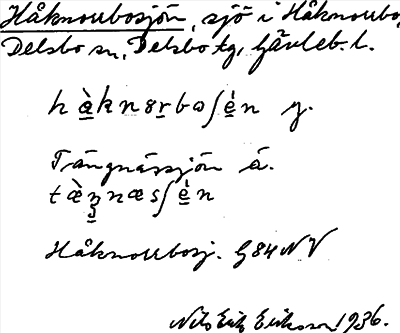 Håknorrbosjön, sjö i Håknorrbo,
Delsbo sn, Delsbo tg, Gävleb. l.
Trängnässjön ä.
Håknorrbosj. G84 NV
Nils Erik Eriksson 1936.